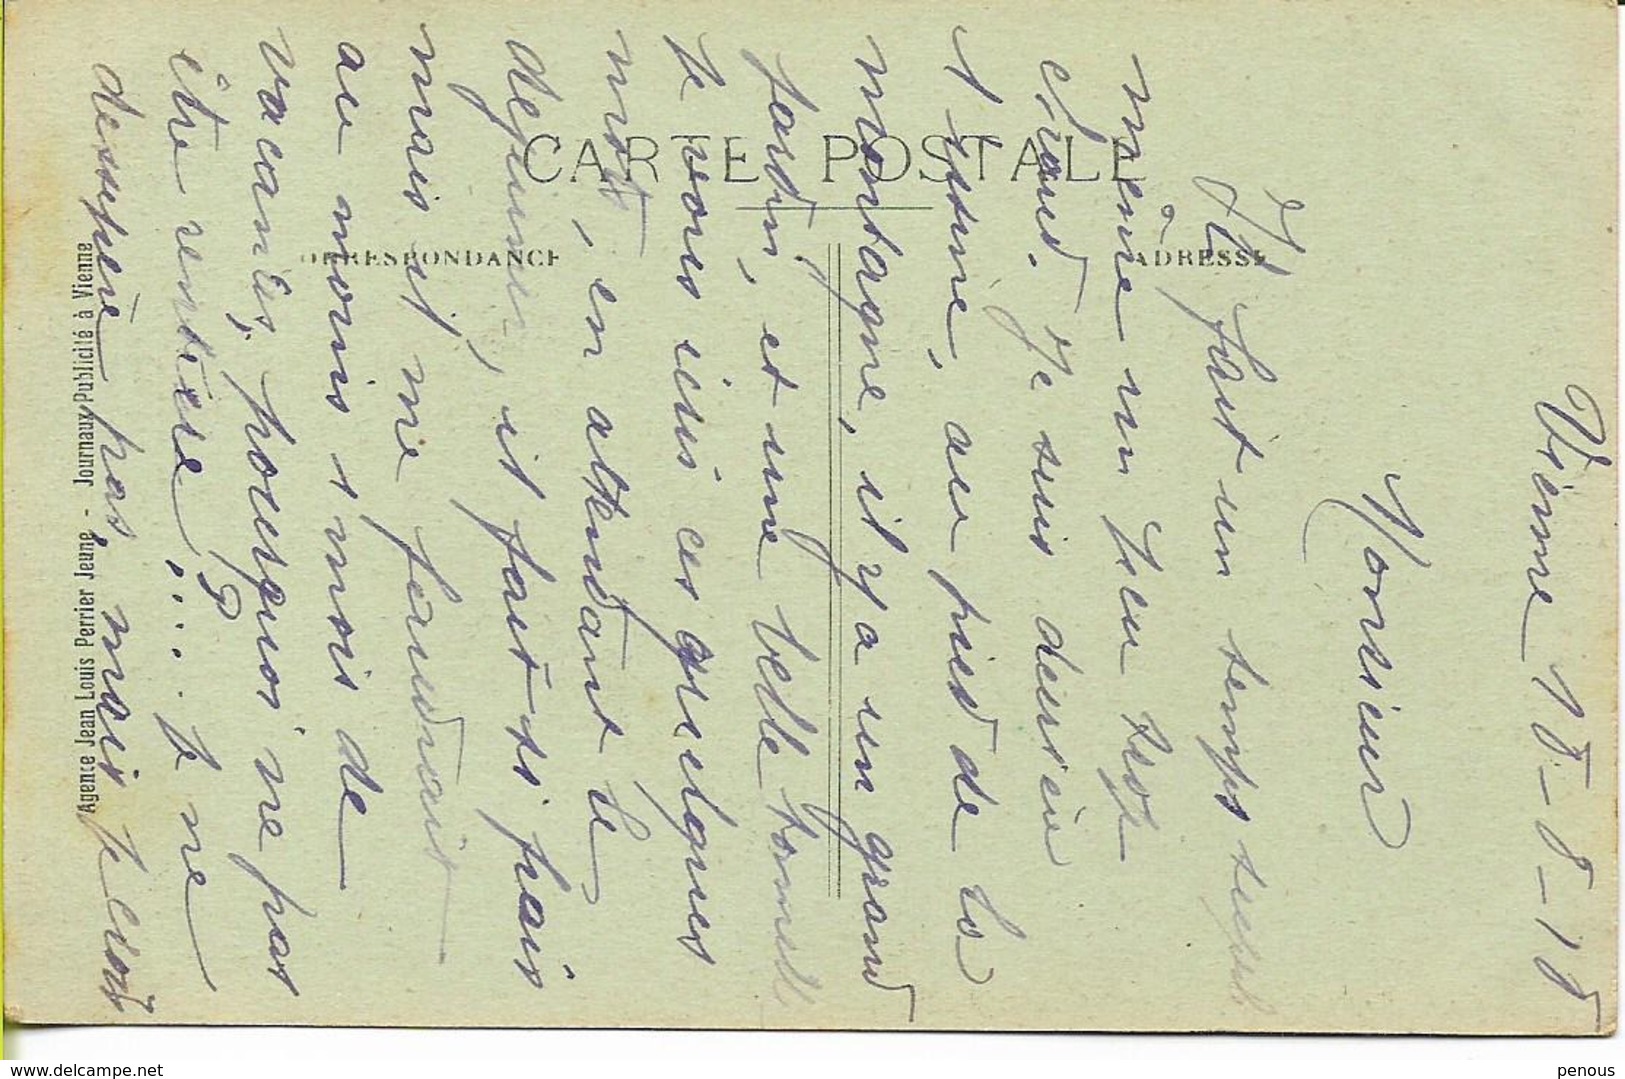 Vienne 18-8-18
Monsieur
Il fait un temps superbe
même un peu trop
chaud. Je suis derrière
l'usine, au pied de la
montagne, il y a un grand
jardin, et une belle tonnelle
je vous écris ces quelques
mots, en attendant le
déjeuner, il fait si frais
mais il me faudrait
au moins 1 mois de
vacances, pourquoi ne pas
être rentière ?... je ne
désespère pas, mais je crois
CARTE POSTALE
CORRESPONDANCE
ADRESSE
Agence Jean Louis Perrier Jeune - Journaux Publicité à Vienne
www.delcampe.net
penous